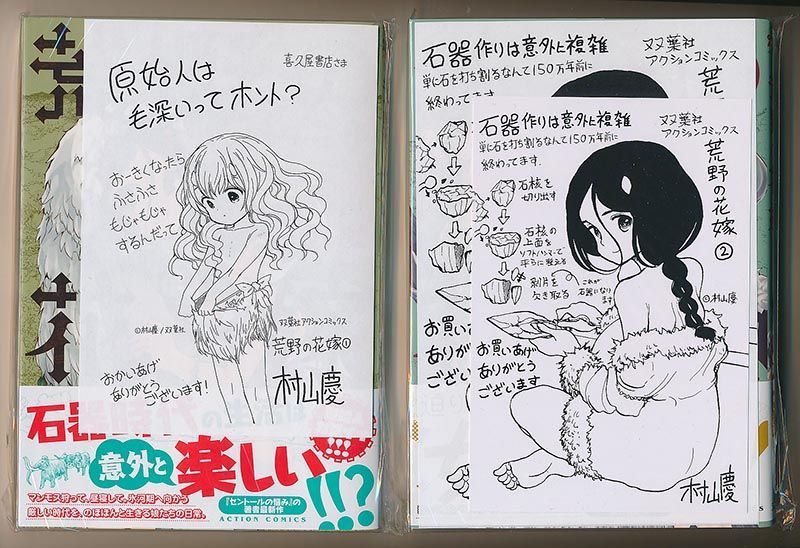 喜久屋書店さま
原始人は
毛深いってホント?
おーきくなったら
ふさふさ
もじゃもじゃ
するんだって
©村山慶/双葉社
双葉社アクションコミックス
荒野の花嫁①
おかいあげ
ありがとう
ございます!
村山慶
石器時代の生活は
意外と
楽しい
!!?
マンモス狩って、昼寝して。氷河期へ向かう
厳しい時代を、のほほんと生きる娘たちの日常。
『セントールの悩み』の
著者最新作
ACTION COMICS
石器作りは意外に複雑
単に石を打ち割るなんて150万年前に
終わってます
双葉社
アクションコミックス
荒
お買いあげ
ありがと
ござい
石器作りは意外に複雑
単に石を打ち割るなんて150万年前に
終わってます
双葉社
アクションコミックス
荒野の花嫁
②
石核を
切り出す
石核の
上面を
ソフトハンマーで
平らに整える
剥片を
欠き取る
これが
石器になり
ます
©村山慶
お買いあげ
ありがとう
ございます
村山慶